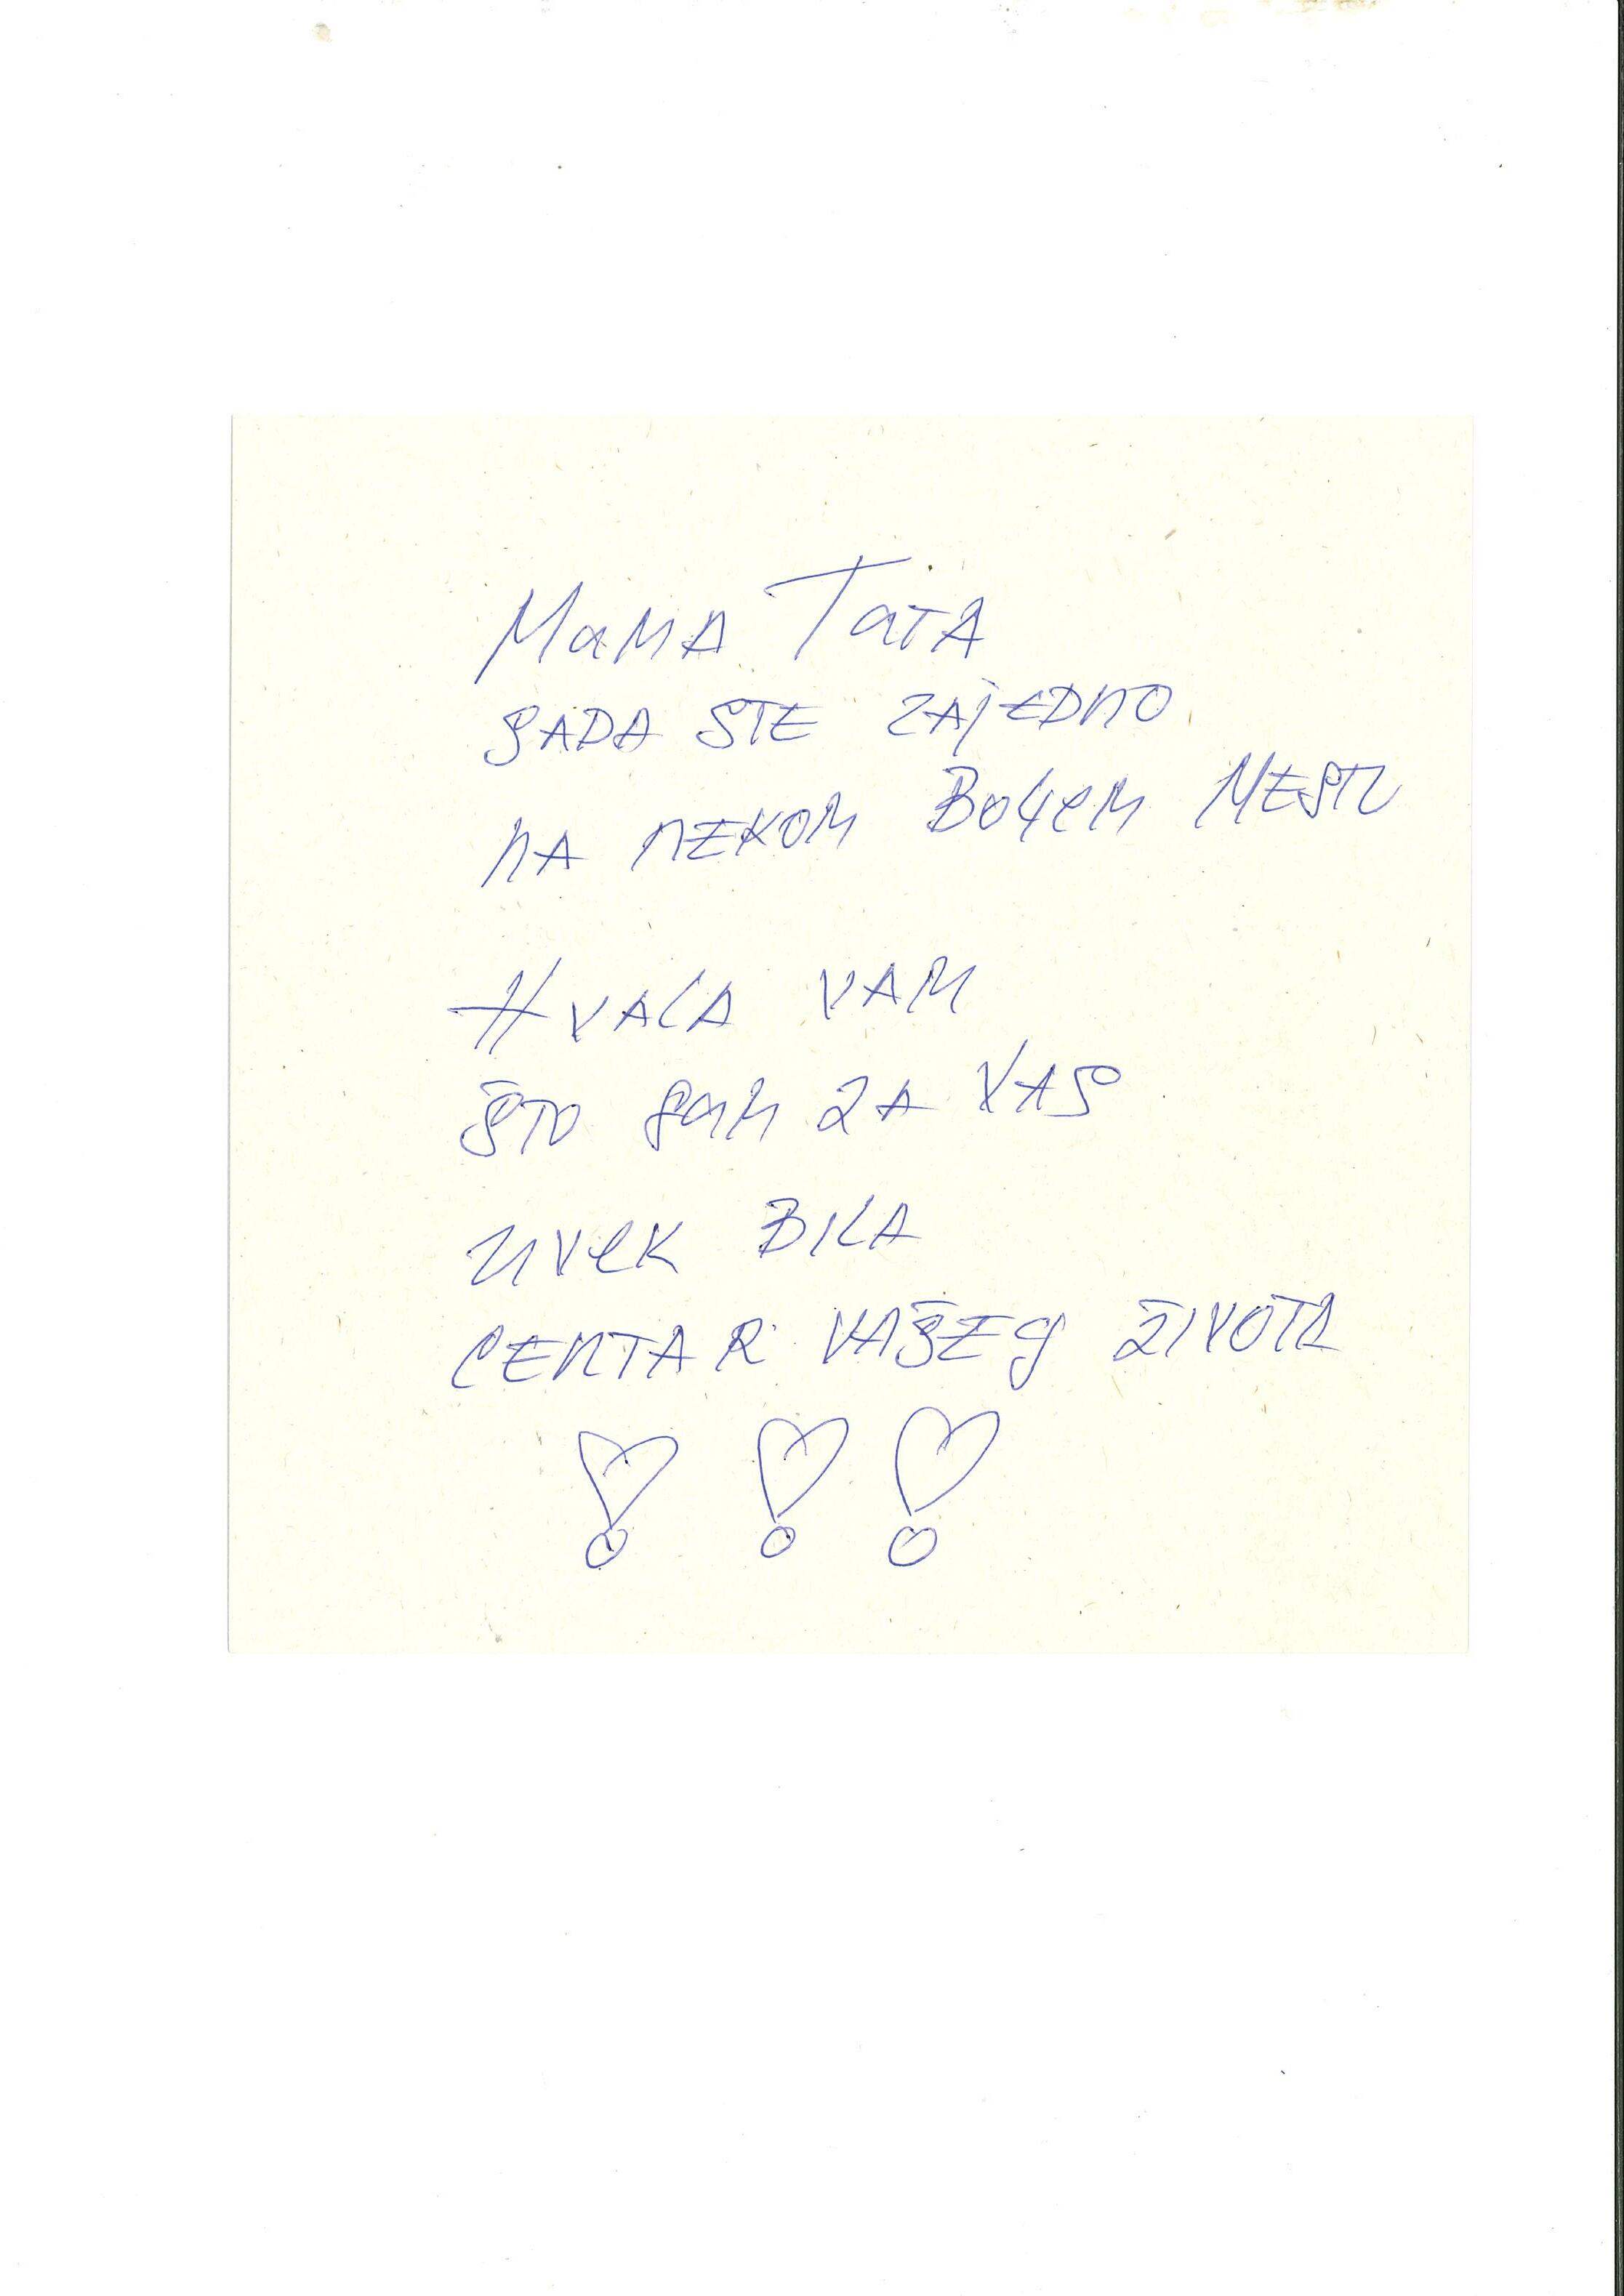 Mama Tata
SADA STE ZAJEDNO
NA NEKOM BOLJEM MESTU
HVALA VAM
ŠTO SAM ZA VAS
UVEK BILA
CENTAR VAŠEG ŽIVOTA